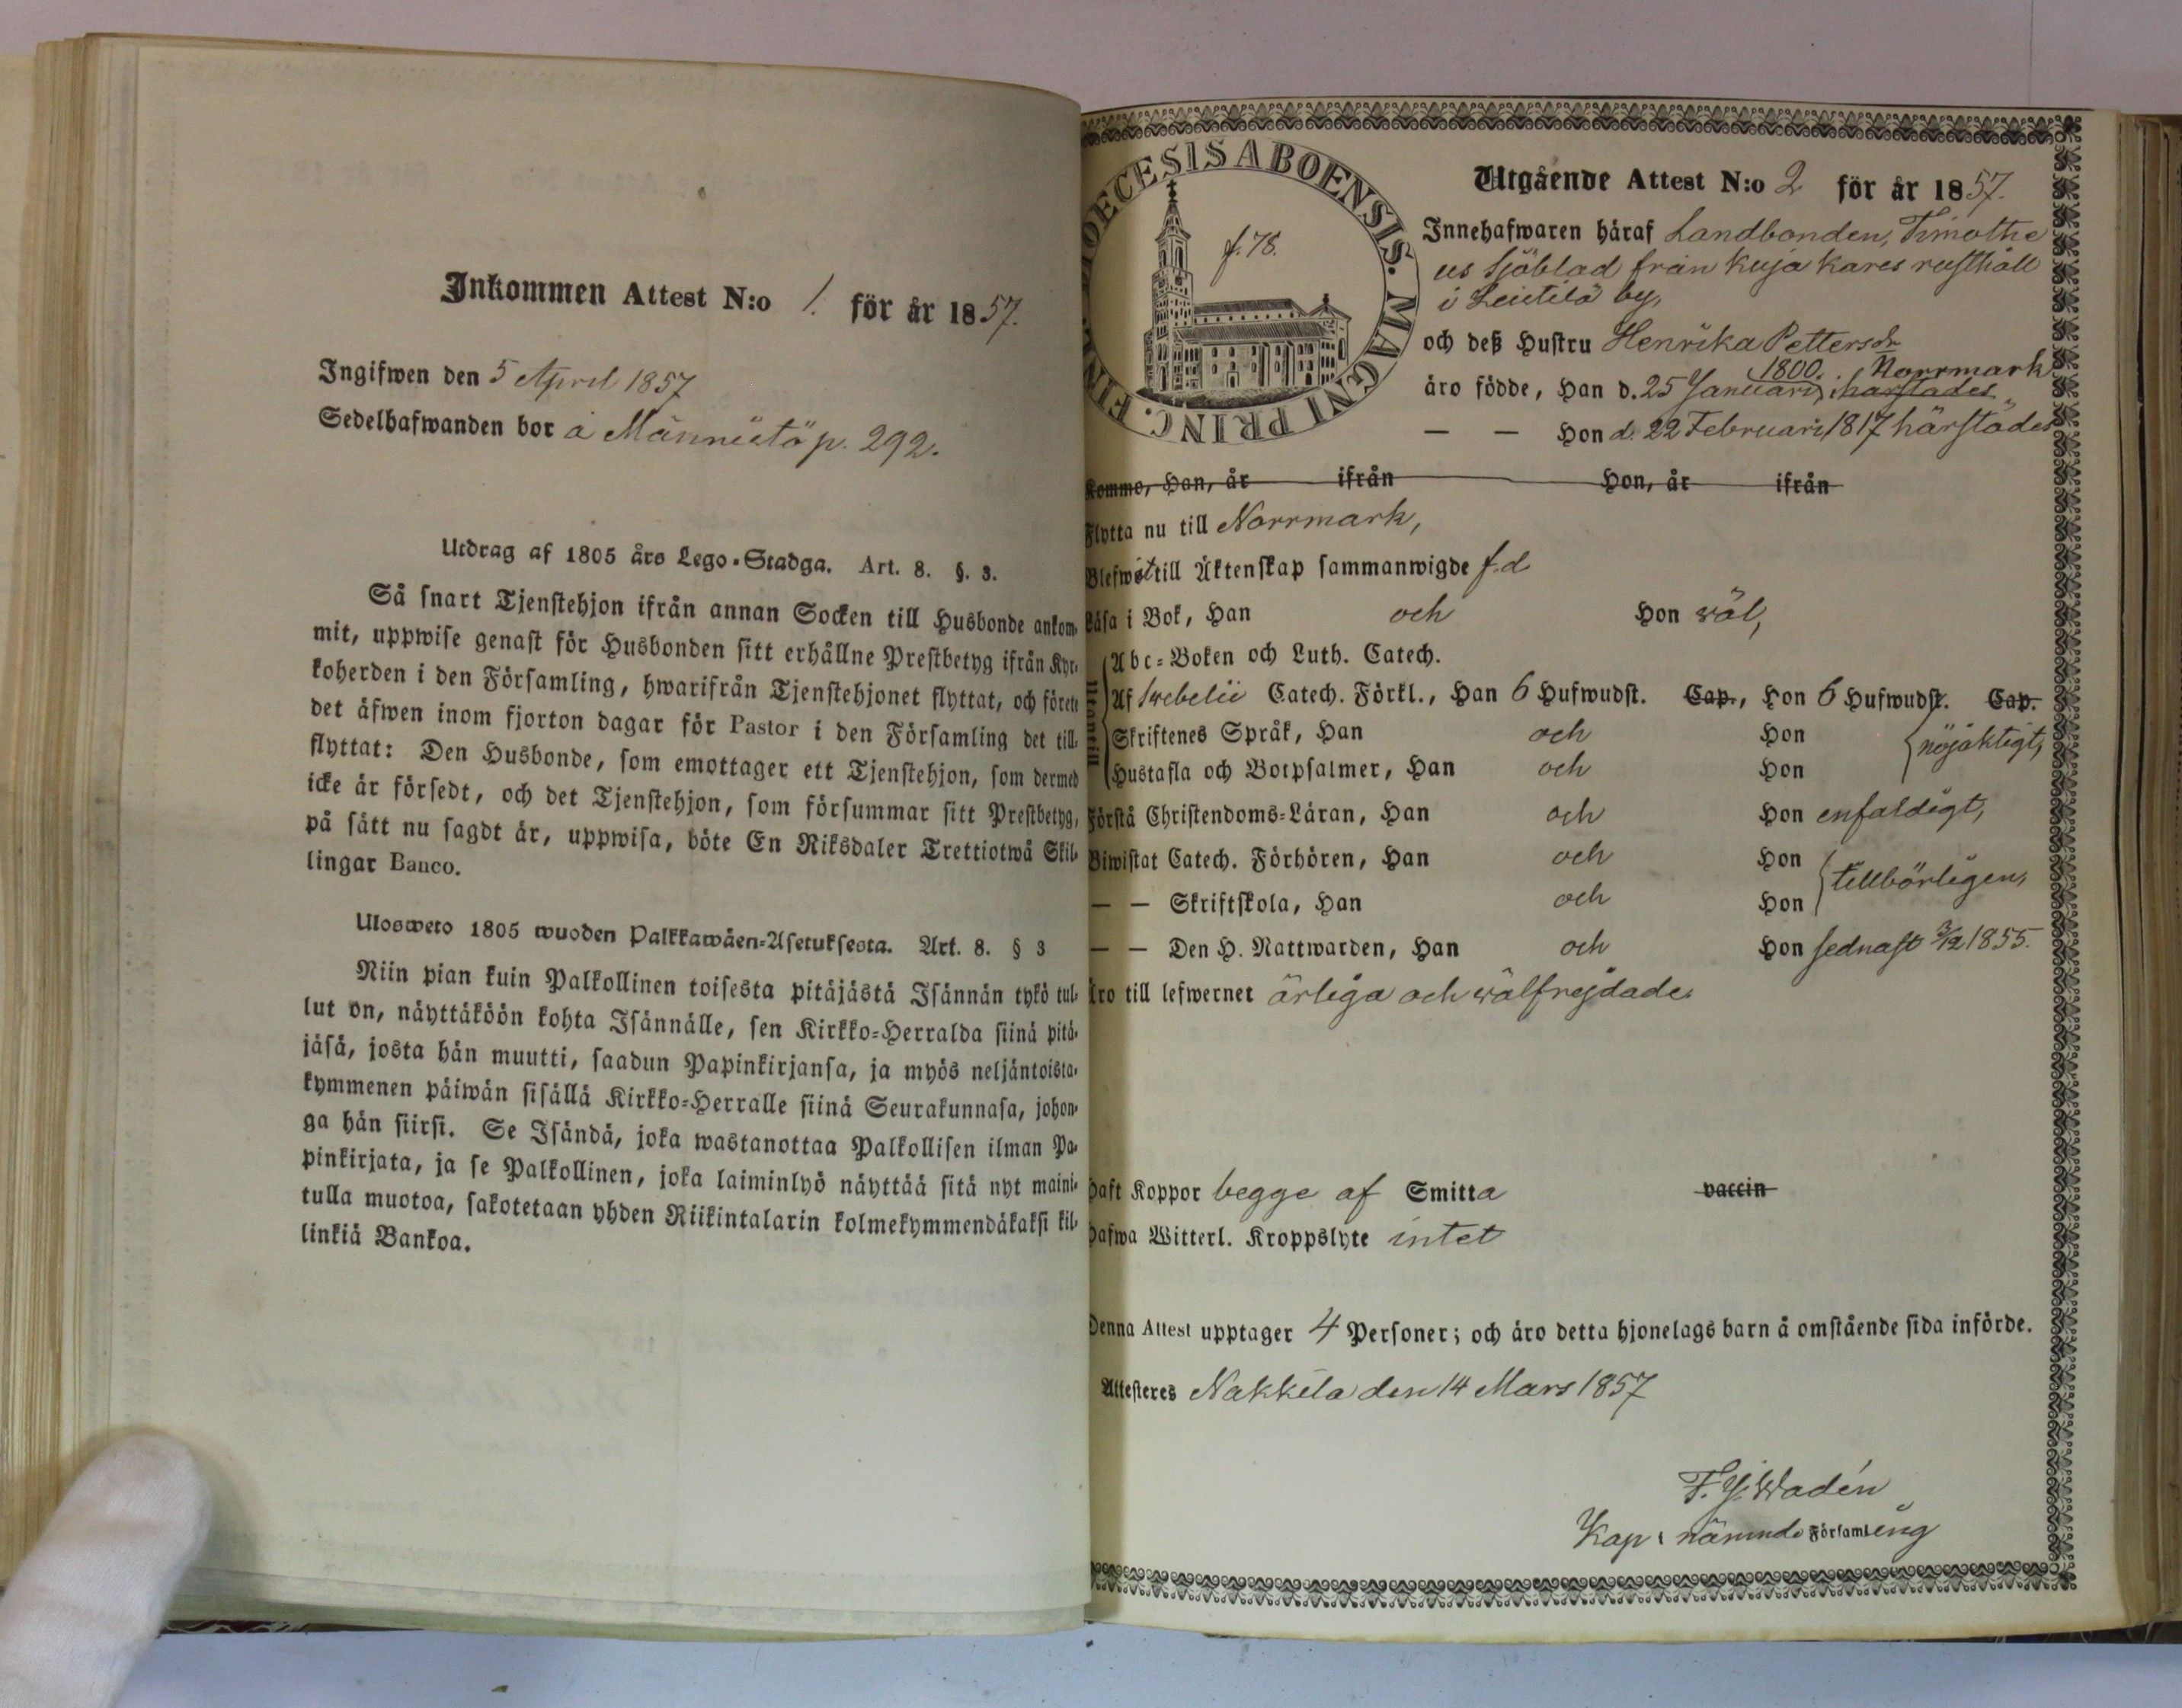 Inkommen Attest N:o 1. för år 1857.
Ingifwen den 5 April 1857
Sedelhafwanden bor å Männistö p. 292.
Utdrag af 1805 års Lego-Stadga. Art. 8. §. 3.
Så snart Tjenstehjon ifrån annan Socken till Husbonde ankom-
mit, uppwise genast för Husbonden sitt erhållne Prestbetyg ifrån Kyr-
koherden i den Församling, hwarifrån Tjenstehjonet flyttat, och förete
det äfwen inom fjorton dagar för Pastor i den Församling det till-
flyttat: Den Husbonde, som emottager ett Tjenstehjon, som dermed
icke är försedt, och det Tjenstehjon, som försummar sitt Prestbetyg,
på sätt nu sagdt är, uppwisa, böte En Riksdaler Trettiotwå Skil-
lingar Banco.
Ulosweto 1805 wuoden Palkkawäen-Asetuksesta. Art. 8. § 3
Niin pian kuin Palkollinen toisesta pitäjästä Isännän tykö tul-
lut on, näyttäköön kohta Isännälle, sen Kirkko-Herralda siinä pitä-
jäsä, josta hän muutti, saadun Papinkirjansa, ja myös neljäntoista-
kymmenen päiwän sisällä Kirkko-Herralle siinä Seurakunnasa, johon-
ga hän siirsi. Se Isändä, joka wastanottaa Palkollisen ilman Pa-
pinkirjata, ja se Palkollinen, joka laiminlyö näyttää sitä nyt maini-
tulla muotoa, sakotetaan yhden Riikintalarin kolmekymmendäkaksi kil-
linkiä Bankoa.
DIOECESIS ABOENSIS. MAGNI PRINC. FINL.
f. 78.
Utgående Attest N:o 2 för år 1857.
Innehafwaren häraf Landbonden, Timothe
us Sjöblad från Kuja Kares rusthåll
i Leistilä by,
och deß Hustru Henrika Pettersdr
1800. Norrmark
äro födde, Han d. 25 Januari, härstädes
— — Hon d. 22 Februari 1817 härstädes
Komme, Han, år ifrån Hon, år ifrån
Flytta nu till Norrmark,
Blefwo till Äktenskap sammanwigde f.d.
Läsa i Bok, Han och Hon wäl,
Abc-Boken och Luth. Catech.
Af Swebelii Catech. Förkl., Han 6 Hufwudst. Cap., Hon 6 Hufwudst. Cap.
Skriftenes Språk, Han och Hon
nöjaktigt,
Hustafla och Botpsalmer, Han och Hon
Förstå Christendoms-Läran, Han och Hon enfaldigt,
Biwistat Catech. Förhören, Han och Hon
tillbörligen,
— — Skriftskola, Han och Hon
— — Den H. Nattwarden, Han och Hon sednast 2/12 1855.
Äro till lefwernet ärliga och wälfrejdade.
Haft Koppor begge af Smitta vaccin
Hafwa Witterl. Kroppslyte intet
Denna Attest upptager 4 Personer; och äro detta hjonelags barn å omstående sida införde.
Attesteres Nakkila den 14 Mars 1857
F. J. Wadén
Kap. i nämnde Församling